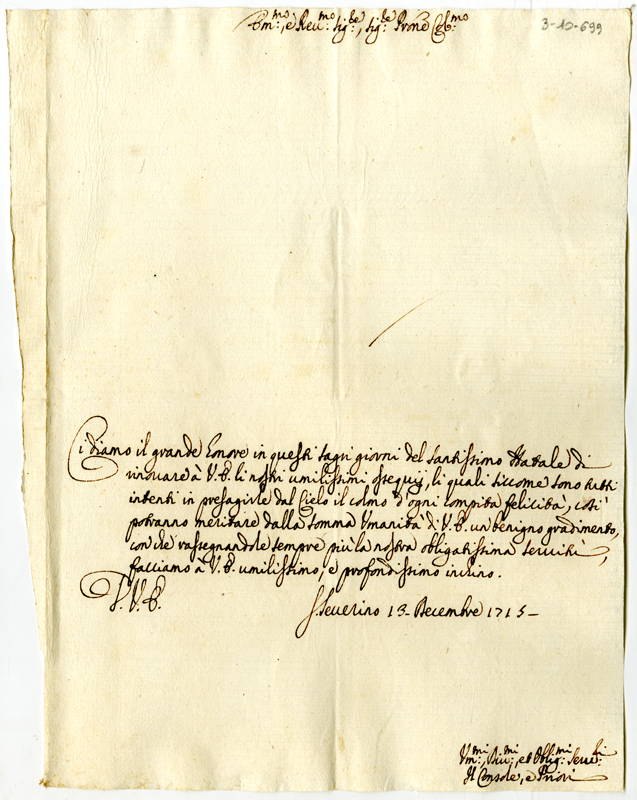 Em.mo, e Reu.mo Sig.re, Sig.re Prone Col.mo
3-12-699
Ci diamo il grande Onore in questi sagri giorni del Santissimo Natale di
rinouare à V.E. li nostri umilissimi ossequij, li quali siccome sono tutti
intenti in presagirle dal Cielo il colmo d'ogni compita felicità, così
potranno meritare dalla somma Umanità di V.E. un benigno gradimento,
con che rassegnandole sempre più la nostra obligatissima seruitù,
facciamo à V.E. umilissimo, e profondissimo inchino.
D. V.E.
S. Seuerino 13. Decembre 1715
Um.mi, Diu.mi, et Oblig.mi Seru.ri
Il Console, e Priori